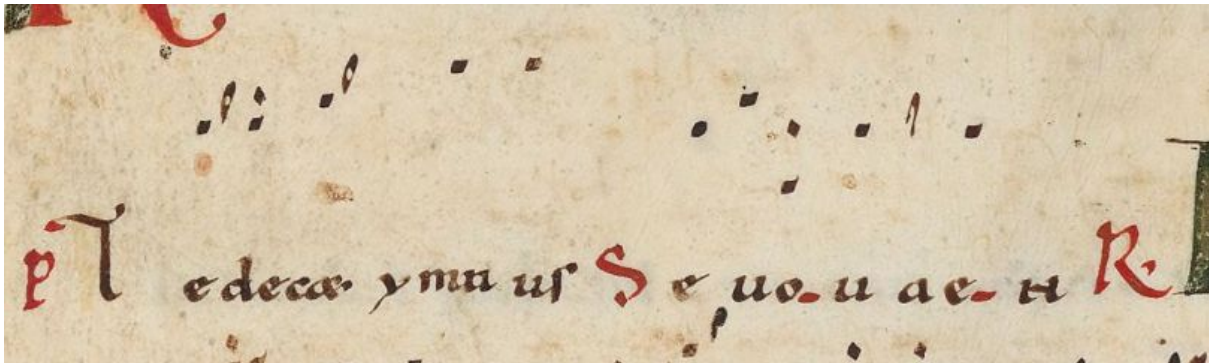 P̄ Te decæ ymnus Seuouaen R